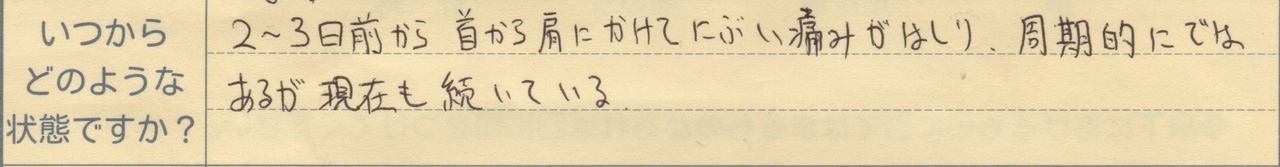 いつから
どのような
状態ですか？
2～3日前から 首から肩にかけてにぶい痛みがはしり、周期的にでは
あるが現在も続いている。